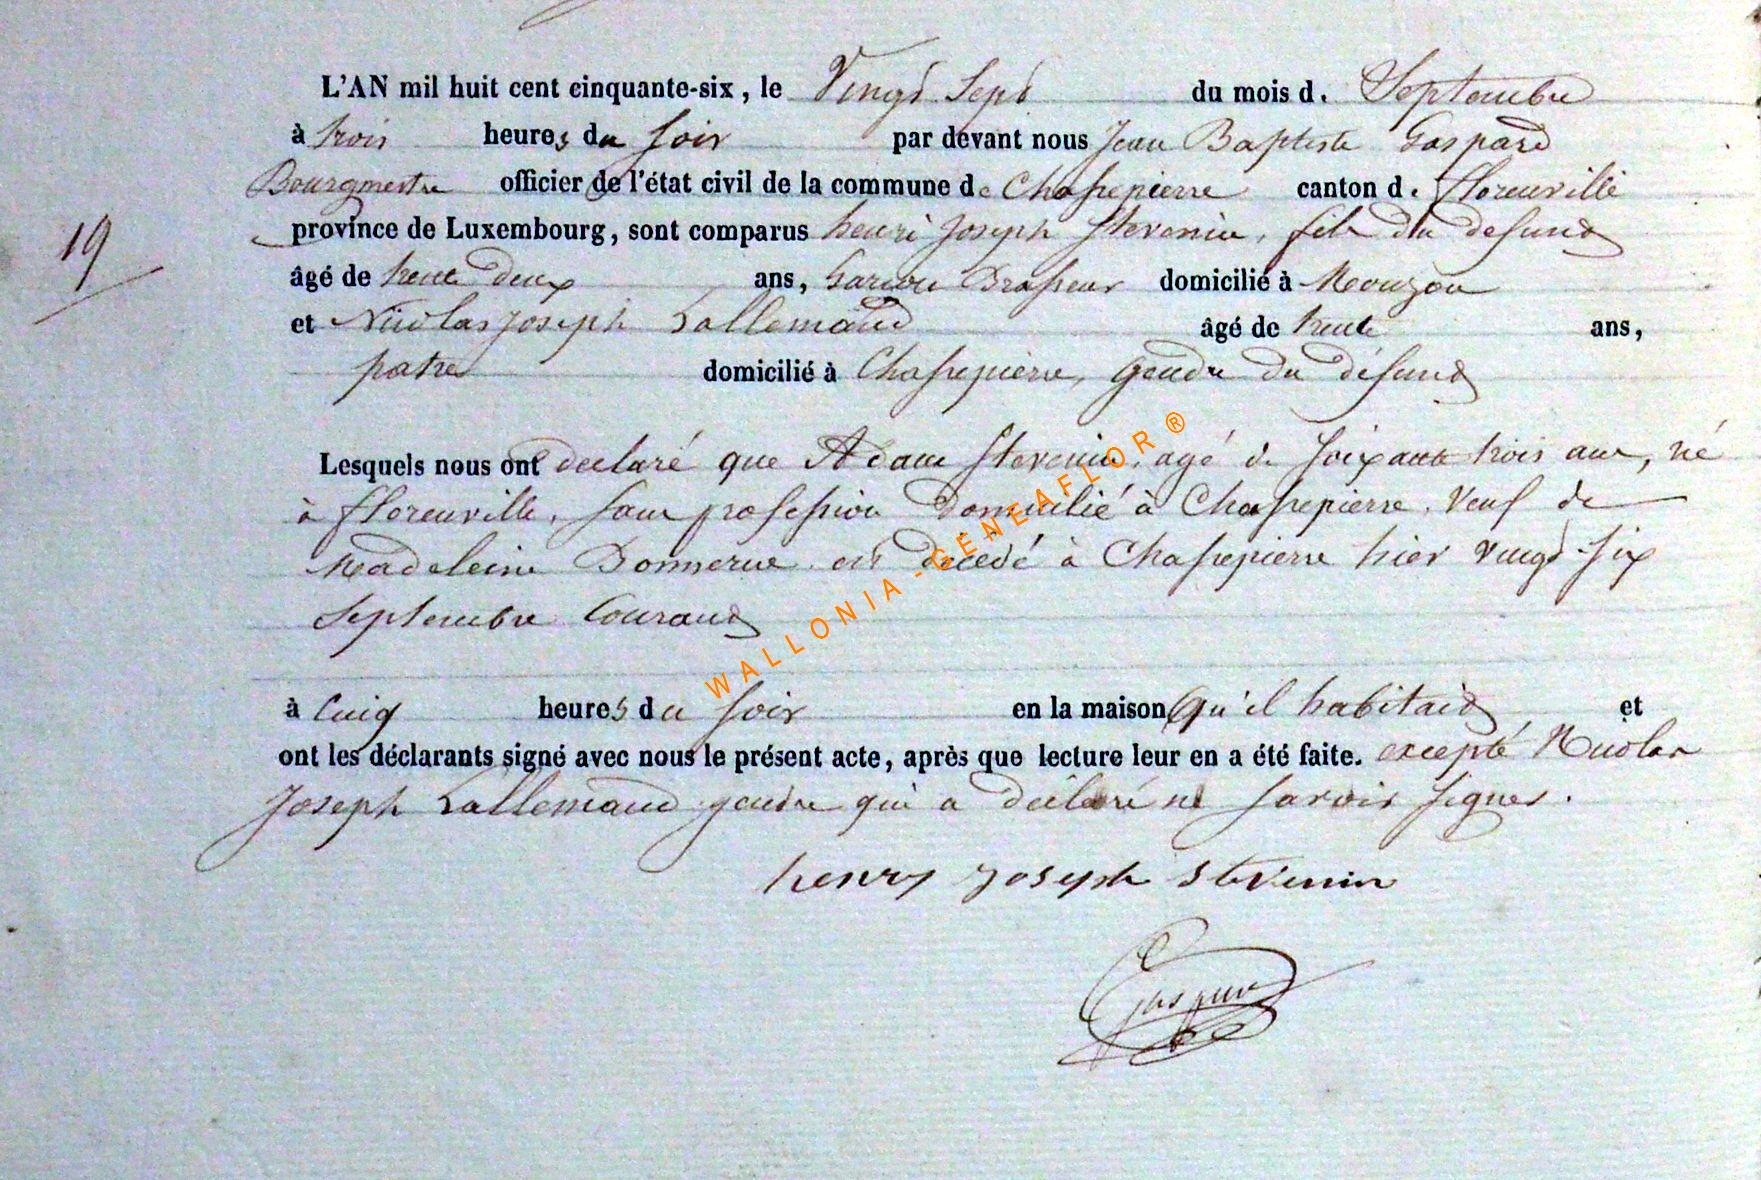 L'AN mil huit cent cinquante-six, le Vingt Sept du mois de Septembre
à trois heures du soir par devant nous Jean Baptiste Gaspard
Bourgmestre officier de l'état civil de la commune de Chassepierre canton de florenville
19
province de Luxembourg, sont comparus henri Joseph Stevenin, fils du defunt
âgé de trente deux ans, Garçon Brasseur domicilié à Mouzon
et Nicolas Joseph Lallemand âgé de trente ans,
patre domicilié à Chassepierre, gendre du défunt
Lesquels nous ont declaré que Adam Stevenin, agé de soixante trois ans, né
à florenville, sans profession domicilié à Chassepierre, Veuf de
Madeleine Bonnerue est décedé à Chassepierre hier vingt six
Septembre Courant
à Cinq heures du soir en la maison qu'il habitait et
ont les déclarants signé avec nous le présent acte, après que lecture leur en a été faite. excepté Nicolas
Joseph Lallemand gendre qui a déclaré ne savoir signer.
henry joseph stevenin
Gaspard
WALLONIA-GENEAFLOR ®